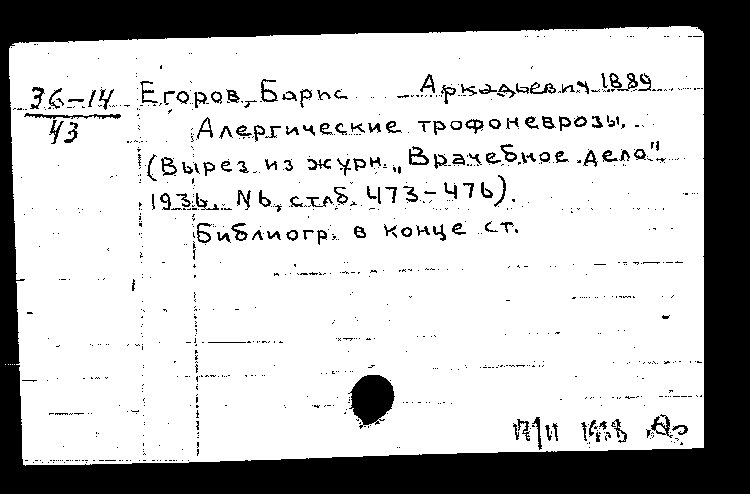 36-14
43
Егоров, Борис Аркадьевич 1889
Алергические трофоневрозы.
(Вырез из журн. „Врачебное дело"
1936. N6, стлб. 473-476).
Библиогр. в конце ст.
17/II 1938